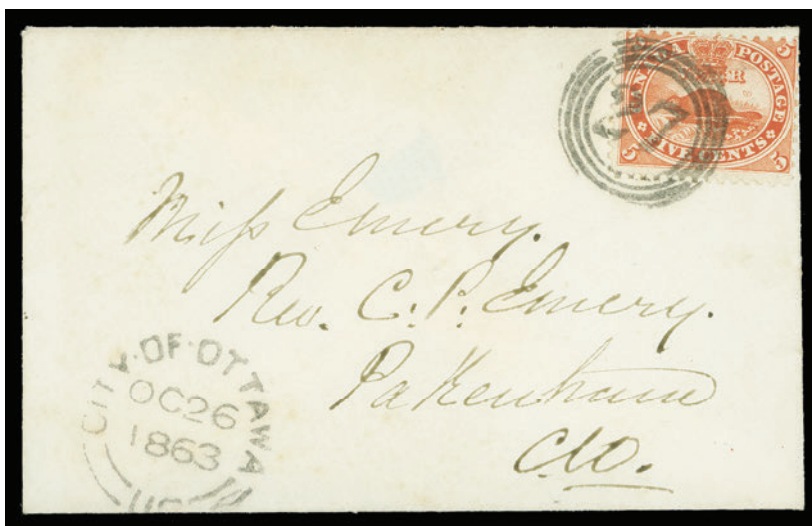 CANADA POSTAGE
5
FIVE CENTS
5 5
Miss Emery.
Rev. C. P. Emery.
Pakenham
CW.
CITY·OF·OTTAWA
OC 26
1863